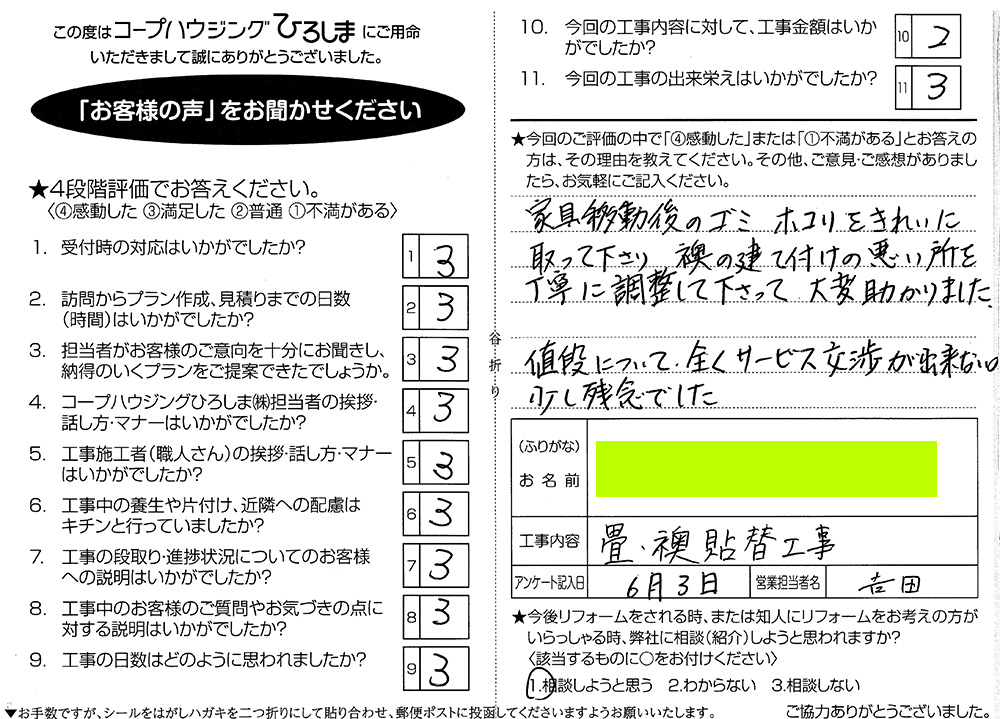 この度はコープハウジングひろしまにご用命
いただきまして誠にありがとうございました。
「お客様の声」をお聞かせください
★4段階評価でお答えください。
〈④感動した ③満足した ②普通 ①不満がある〉
1. 受付時の対応はいかがでしたか?
1 3
2. 訪問からプラン作成、見積りまでの日数
(時間)はいかがでしたか?
2 3
3. 担当者がお客様のご意向を十分にお聞きし、
納得のいくプランをご提案できたでしょうか。
3 3
4. コープハウジングひろしま㈱担当者の挨拶・
話し方・マナーはいかがでしたか?
4 3
5. 工事施工者(職人さん)の挨拶・話し方・マナー
はいかがでしたか?
5 3
6. 工事中の養生や片付け、近隣への配慮は
キチンと行っていましたか?
6 3
7. 工事の段取り・進捗状況についてのお客様
への説明はいかがでしたか?
7 3
8. 工事中のお客様のご質問やお気づきの点に
対する説明はいかがでしたか?
8 3
9. 工事の日数はどのように思われましたか?
9 3
▼お手数ですが、シールをはがしハガキを二つ折りにして貼り合わせ、郵便ポストに投函してくださいますようお願いいたします。
谷折り
10. 今回の工事内容に対して、工事金額はいか
がでしたか?
10 2
11. 今回の工事の出来栄えはいかがでしたか?
11 3
★今回のご評価の中で「④感動した」または「①不満がある」とお答えの
方は、その理由を教えてください。その他、ご意見・ご感想がありまし
たら、お気軽にご記入ください。
家具移動後のゴミ ホコリをきれいに
取って下さり 襖の建て付けの悪い所を
丁寧に調整して下さって 大変助かりました。
値段について、全くサービス交渉が出来ないの
少し残念でした
(ふりがな)
お名前
工事内容 畳・襖貼替工事
アンケート記入日 6月3日 営業担当者名 吉田
★今後リフォームをされる時、または知人にリフォームをお考えの方が
いらっしゃる時、弊社に相談(紹介)しようと思われますか?
〈該当するものに○をお付けください〉
1.相談しようと思う 2.わからない 3.相談しない
ご協力ありがとうございました。